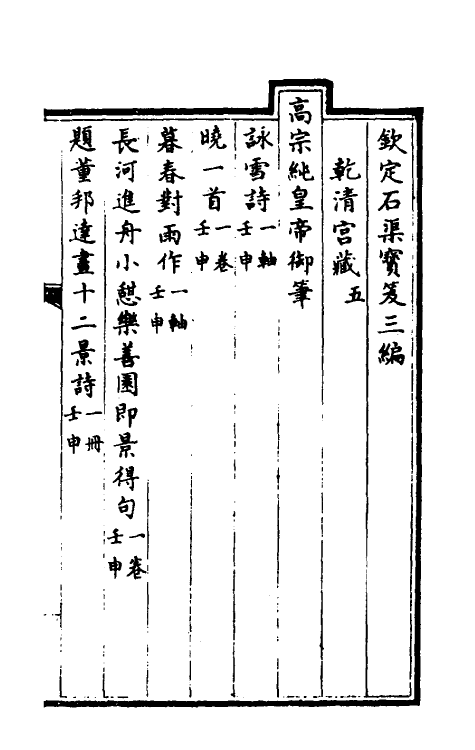 欽定石渠寶笈三編
乾清宮藏五
高宗純皇帝御筆
詠雪詩一軸壬申
曉一首一卷壬申
暮春對雨作一軸壬申
長河進舟小憇樂善園即景得句一卷壬申
題董邦達畫十二景詩一冊壬申